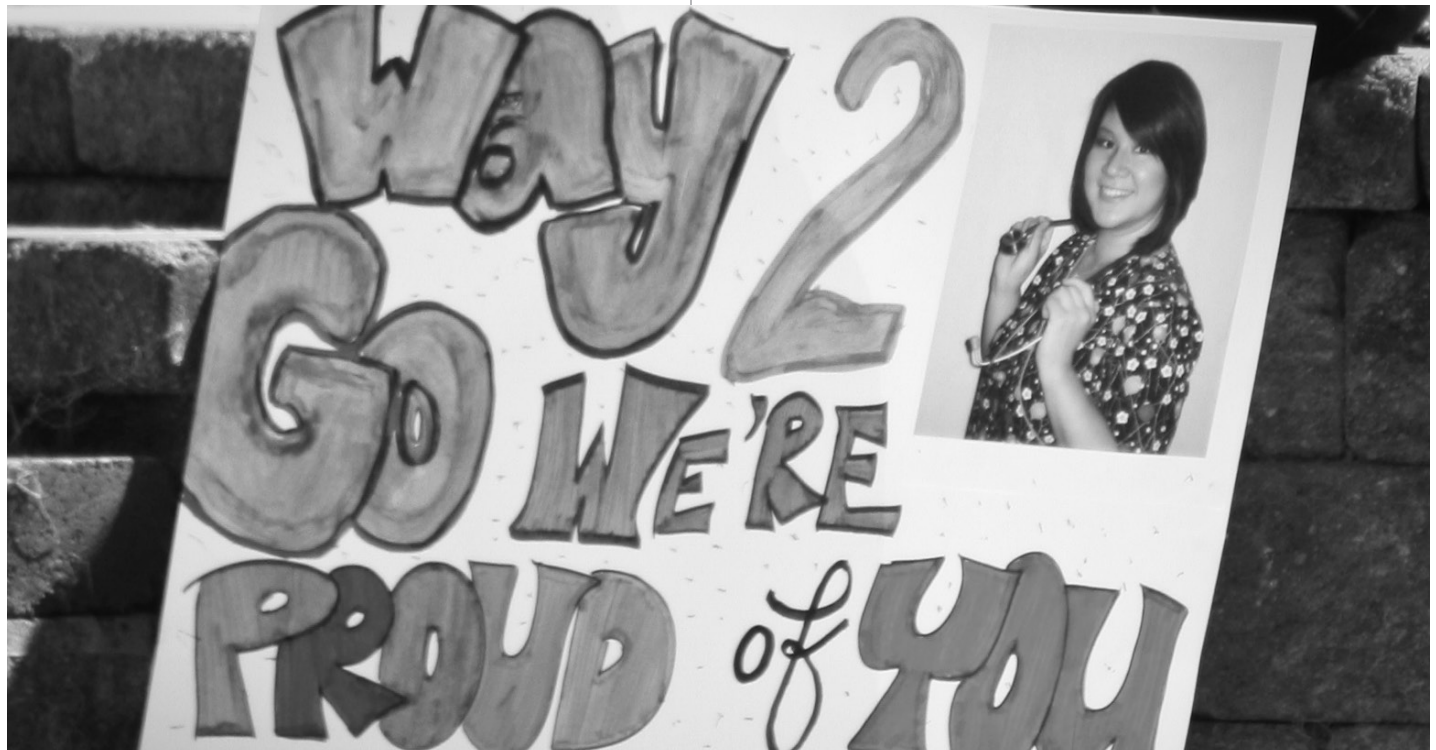 Way 2
Go WE'RE
PROUD of YOU